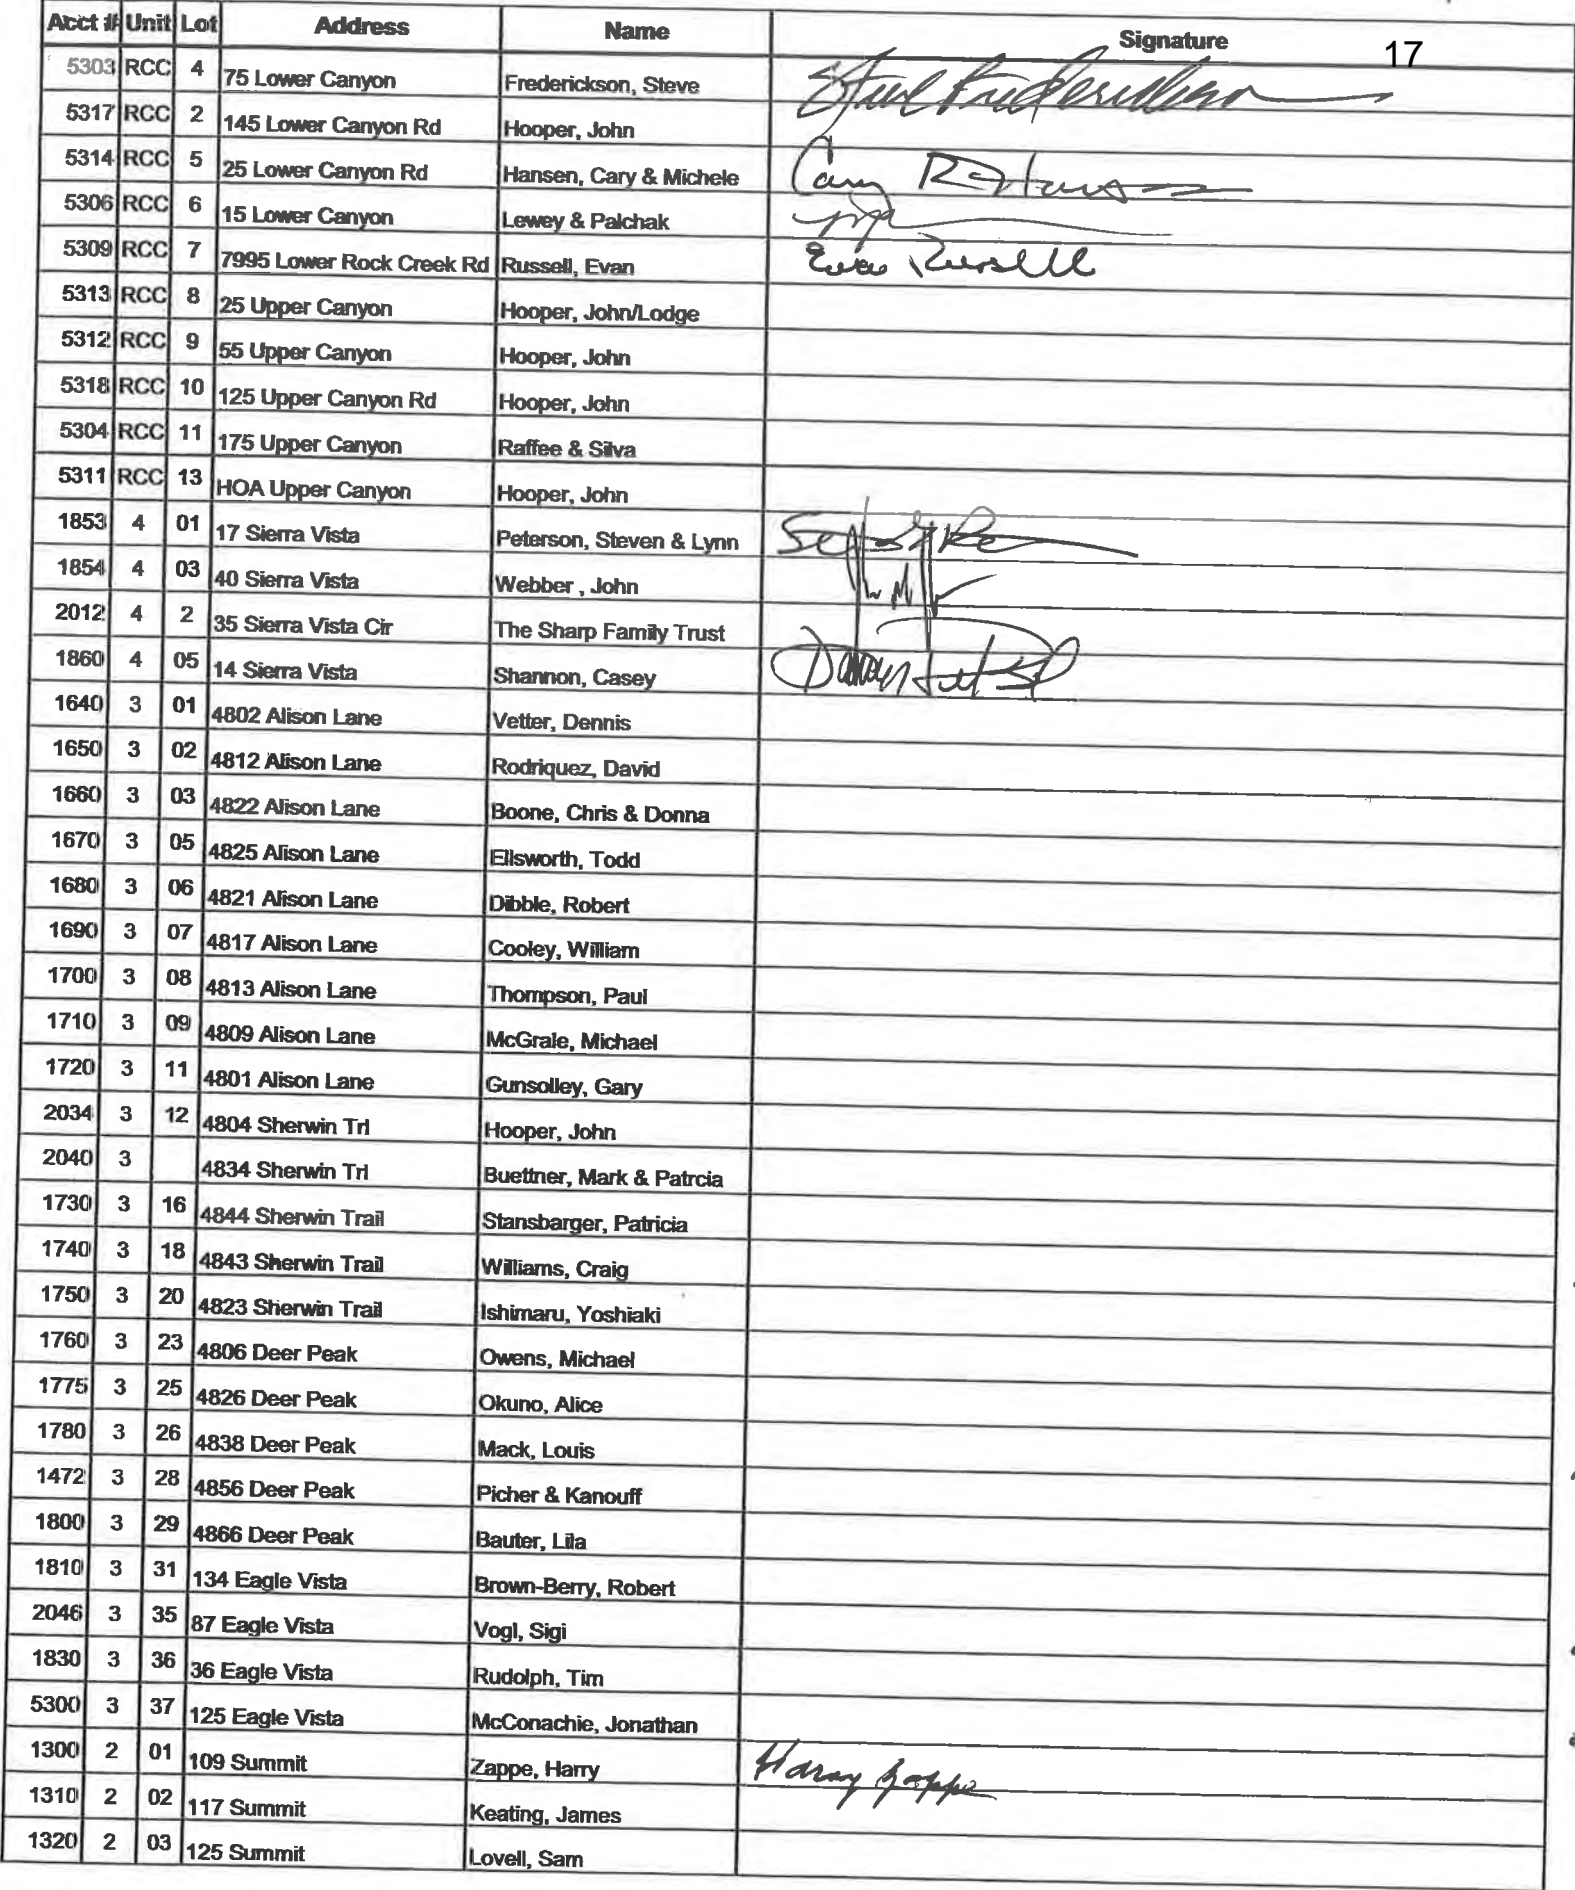 Acct # Unit Lot Address Name Signature
17
5303 RCC 4 75 Lower Canyon Frederickson, Steve
5317 RCC 2 145 Lower Canyon Rd Hooper, John
5314 RCC 5 25 Lower Canyon Rd Hansen, Cary & Michele Cary R Hansen
5306 RCC 6 15 Lower Canyon Lewey & Palchak
5309 RCC 7 7995 Lower Rock Creek Rd Russell, Evan Evan Russell
5313 RCC 8 25 Upper Canyon Hooper, John/Lodge
5312 RCC 9 55 Upper Canyon Hooper, John
5318 RCC 10 125 Upper Canyon Rd Hooper, John
5304 RCC 11 175 Upper Canyon Raffee & Silva
5311 RCC 13 HOA Upper Canyon Hooper, John
1853 4 01 17 Sierra Vista Peterson, Steven & Lynn
1854 4 03 40 Sierra Vista Webber , John
2012 4 2 35 Sierra Vista Cir The Sharp Family Trust
1860 4 05 14 Sierra Vista Shannon, Casey
1640 3 01 4802 Alison Lane Vetter, Dennis
1650 3 02 4812 Alison Lane Rodriquez, David
1660 3 03 4822 Alison Lane Boone, Chris & Donna
1670 3 05 4825 Alison Lane Ellsworth, Todd
1680 3 06 4821 Alison Lane Dibble, Robert
1690 3 07 4817 Alison Lane Cooley, William
1700 3 08 4813 Alison Lane Thompson, Paul
1710 3 09 4809 Alison Lane McGrale, Michael
1720 3 11 4801 Alison Lane Gunsolley, Gary
2034 3 12 4804 Sherwin Trl Hooper, John
2040 3 4834 Sherwin Trl Buettner, Mark & Patrcia
1730 3 16 4844 Sherwin Trail Stansbarger, Patricia
1740 3 18 4843 Sherwin Trail Williams, Craig
1750 3 20 4823 Sherwin Trail Ishimaru, Yoshiaki
1760 3 23 4806 Deer Peak Owens, Michael
1775 3 25 4826 Deer Peak Okuno, Alice
1780 3 26 4838 Deer Peak Mack, Louis
1472 3 28 4856 Deer Peak Picher & Kanouff
1800 3 29 4866 Deer Peak Bauter, Lila
1810 3 31 134 Eagle Vista Brown-Berry, Robert
2046 3 35 87 Eagle Vista Vogl, Sigi
1830 3 36 36 Eagle Vista Rudolph, Tim
5300 3 37 125 Eagle Vista McConachie, Jonathan
1300 2 01 109 Summit Zappe, Harry Harry Zappe
1310 2 02 117 Summit Keating, James
1320 2 03 125 Summit Lovell, Sam